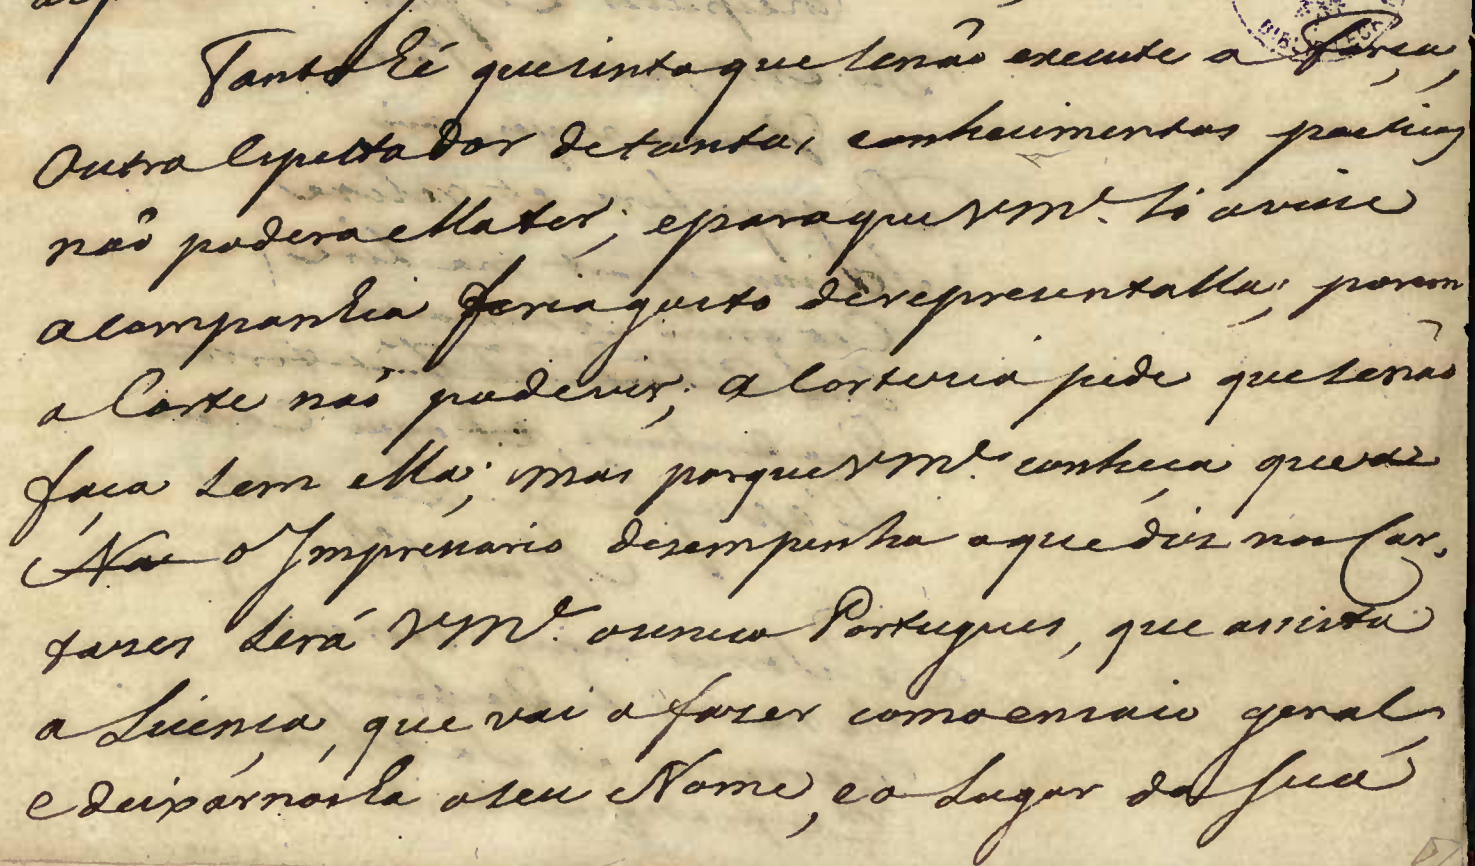 Tanto hé que sinto que se não execute a Farça,
Outro Espectador de tantos conhecimentos poeticos
não poderá ella ter; e para que Vm.ce só a visse
a Companhia faria gosto de representalla; porem
a Corte não pode vir; a Cortezia pede que se não
faça sem ella; mas porque Vm.ce conheça que
o Impressario desempenha o que diz nos Car-
tazes será Vm.ce o unico Portugues, que assista
a Licença, que vai a fazer como ensaio geral,
e deixarnosha o seu Nome, e o Lugar da sua